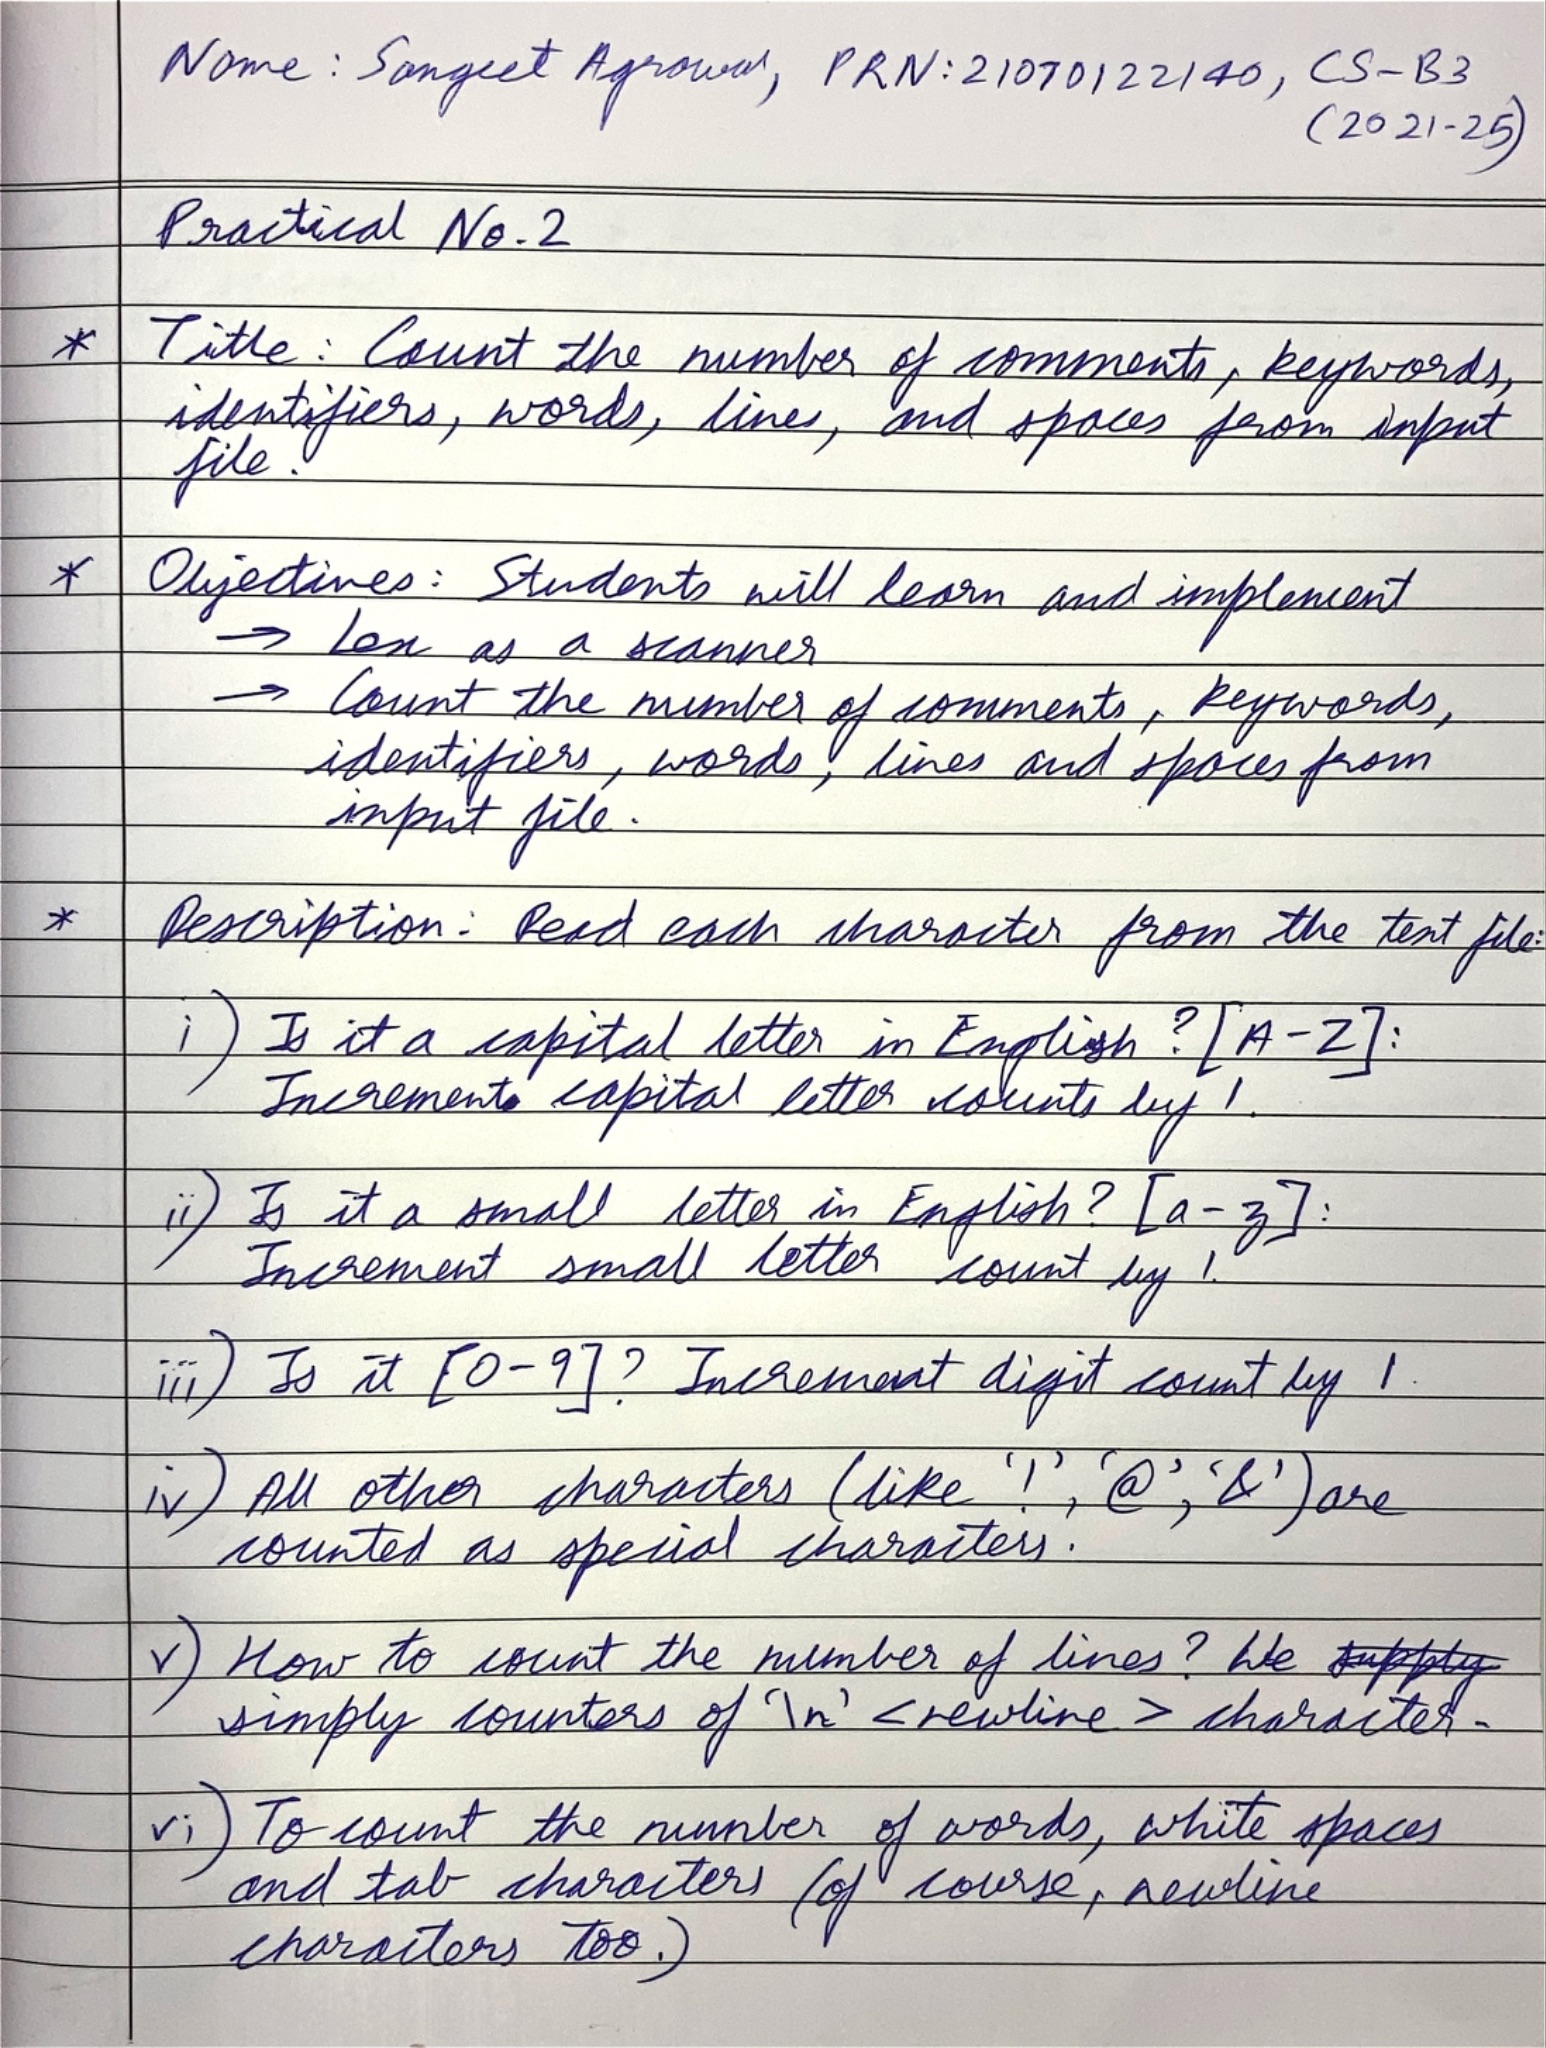 Name : Sangeet Agrawal, PRN: 21070122140, CS-B3
(2021-25)
Practical No. 2
* Title : Count the number of comments, keywords,
identifiers, words, lines, and spaces from input
file.
* Objectives : Students will learn and implement
→ Lex as a scanner
→ Count the number of comments, keywords,
identifiers, words, lines and spaces from
input file.
* Description : Read each character from the text file:
i) Is it a capital letter in English ? [A-Z]:
Increment capital letter counts by 1.
ii) Is it a small letter in English? [a-z]:
Increment small letter count by 1.
iii) Is it [0-9]? Increment digit count by 1.
iv) All other characters (like '!', '@', '&') are
counted as special characters.
v) How to count the number of lines? We supply
simply counters of '\n' <newline> character.
vi) To count the number of words, white spaces
and tab characters (of course, newline
characters too.)